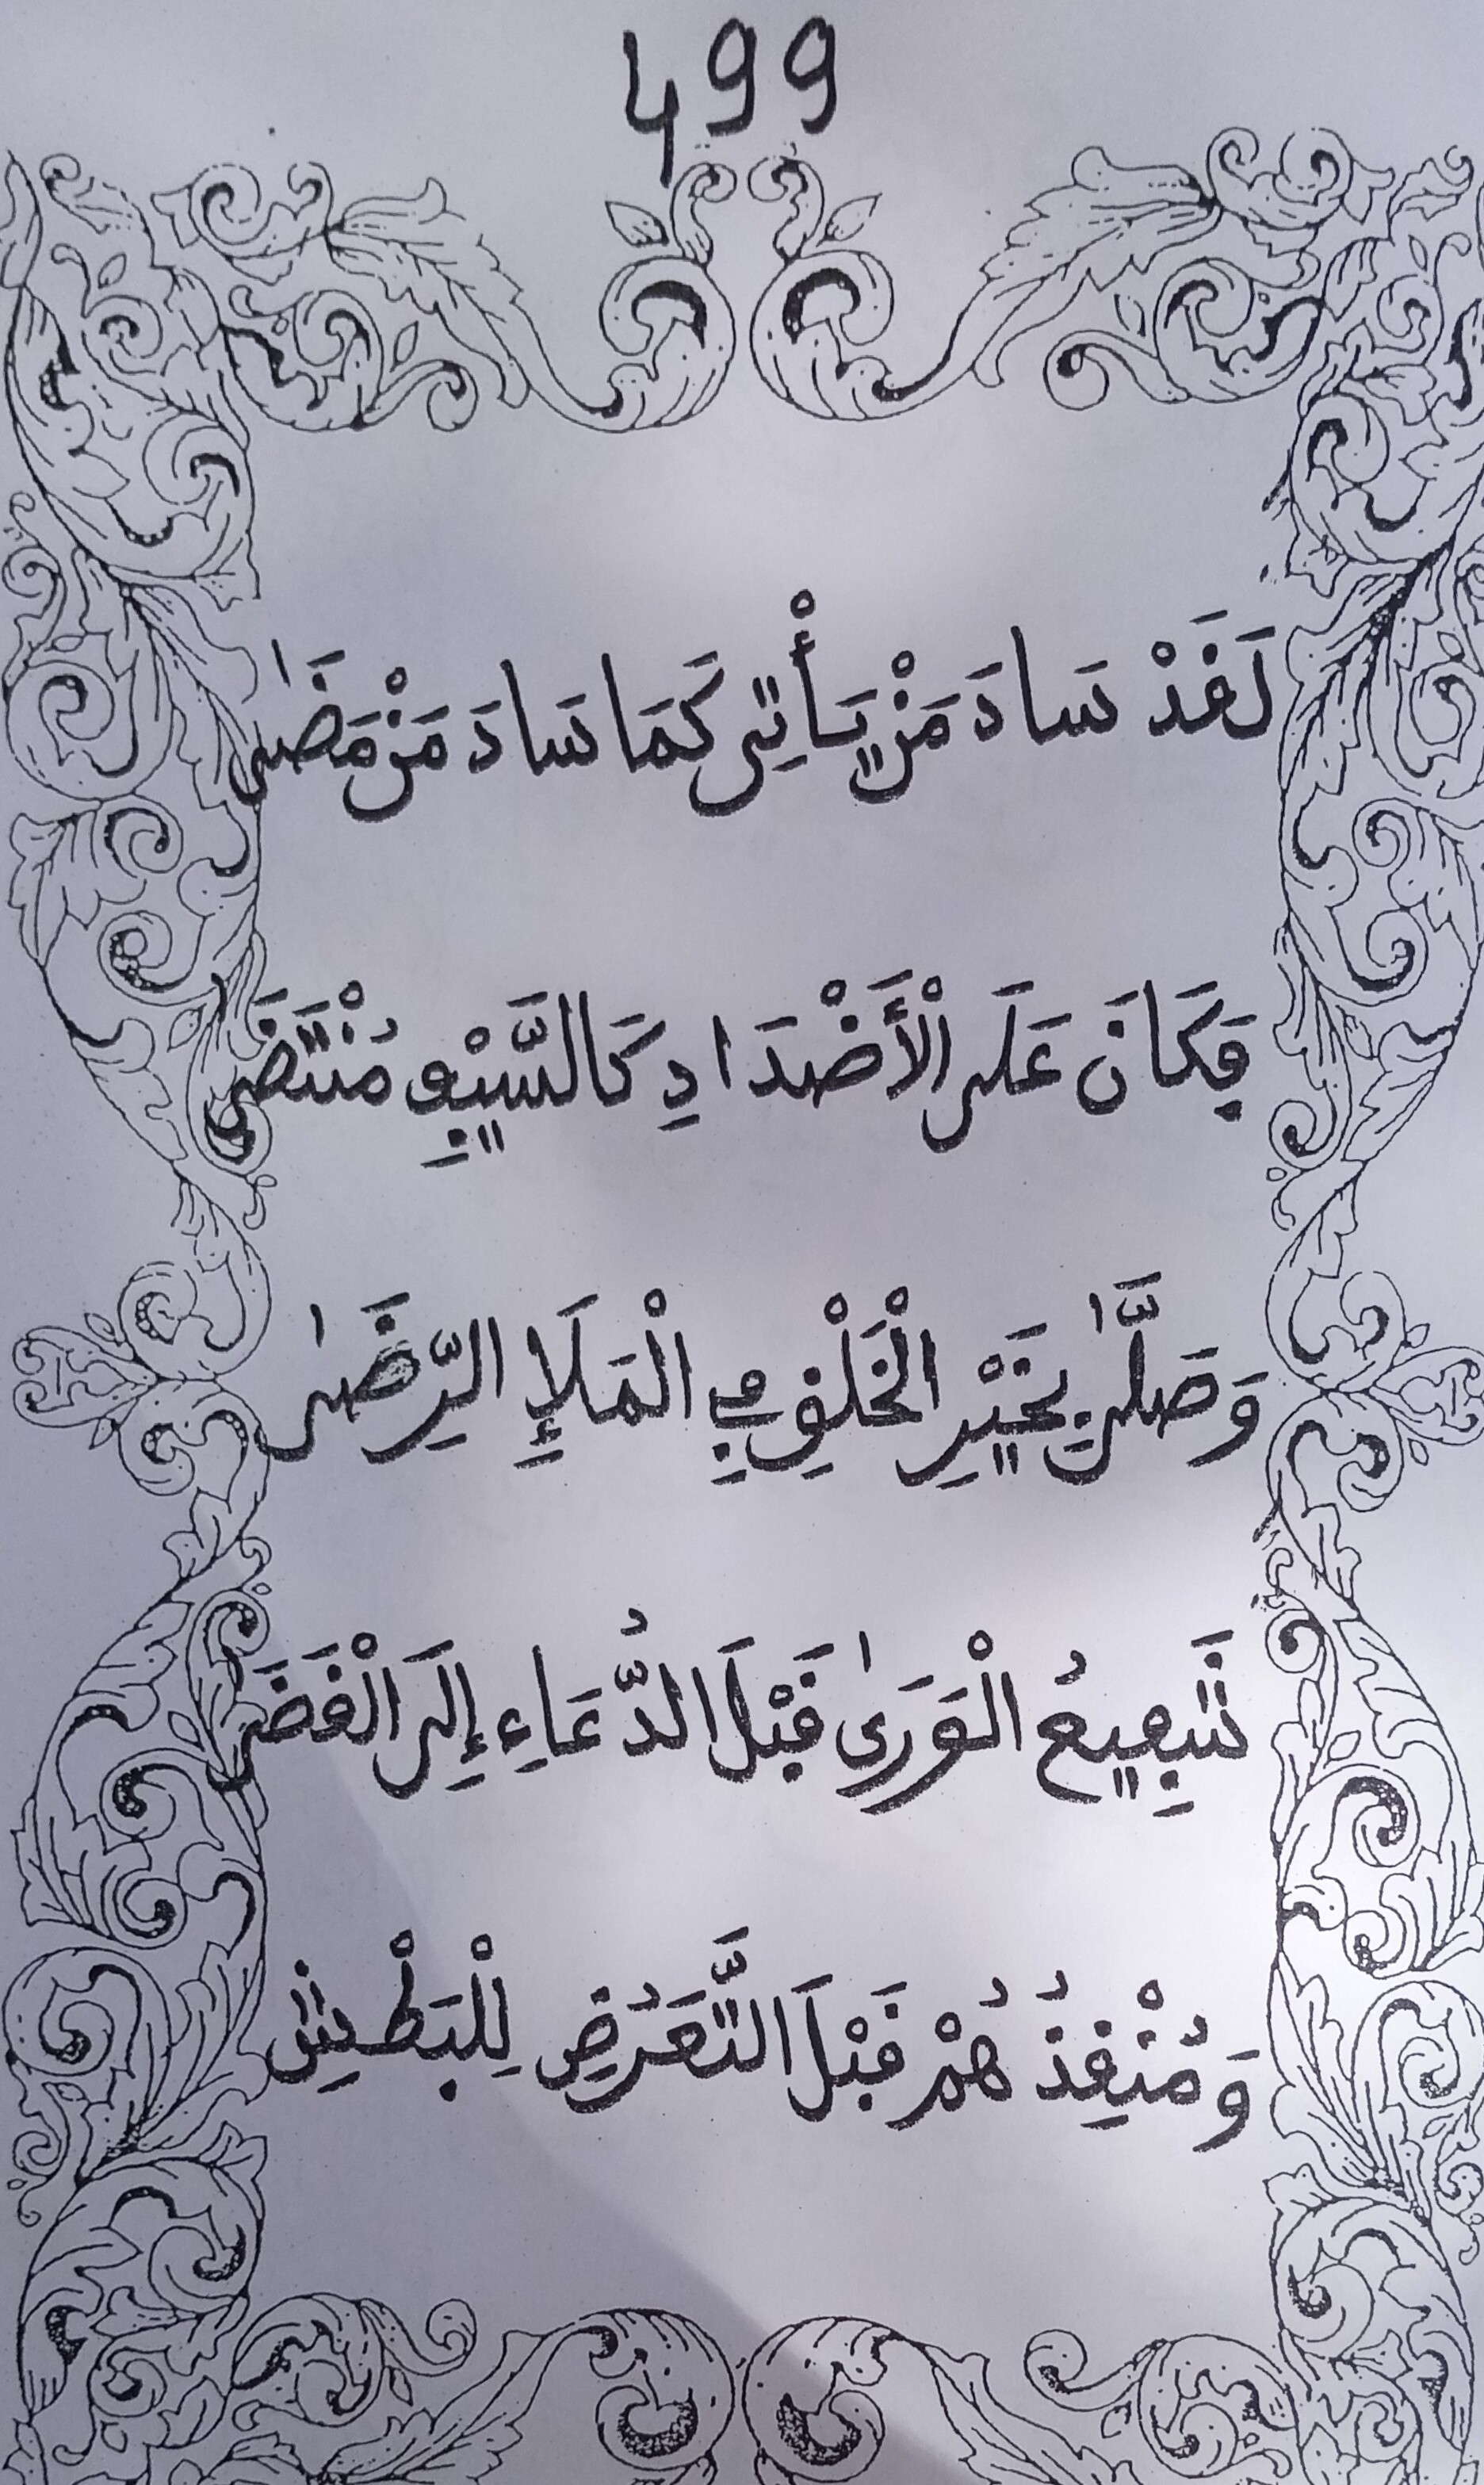 499
لَقَدْ سَادَ مَنْ يَأْتِي كَمَا سَادَ مَنْ مَضَىٰ
فَكَانَ عَلَى الْأَضْدَادِ كَالسَّيْفِ مُنْتَضَى
وَصَلَّىٰ بِخَيْرِ الْخَلْقِ فِي الْمَلَإِ الرِّضَىٰ
شَفِيعُ الْوَرَىٰ قَبْلَ الدُّعَاءِ إِلَى الْقَضَا
وَمُنْقِذُهُمْ قَبْلَ التَّعَرُّضِ لِلْبَطْشِ